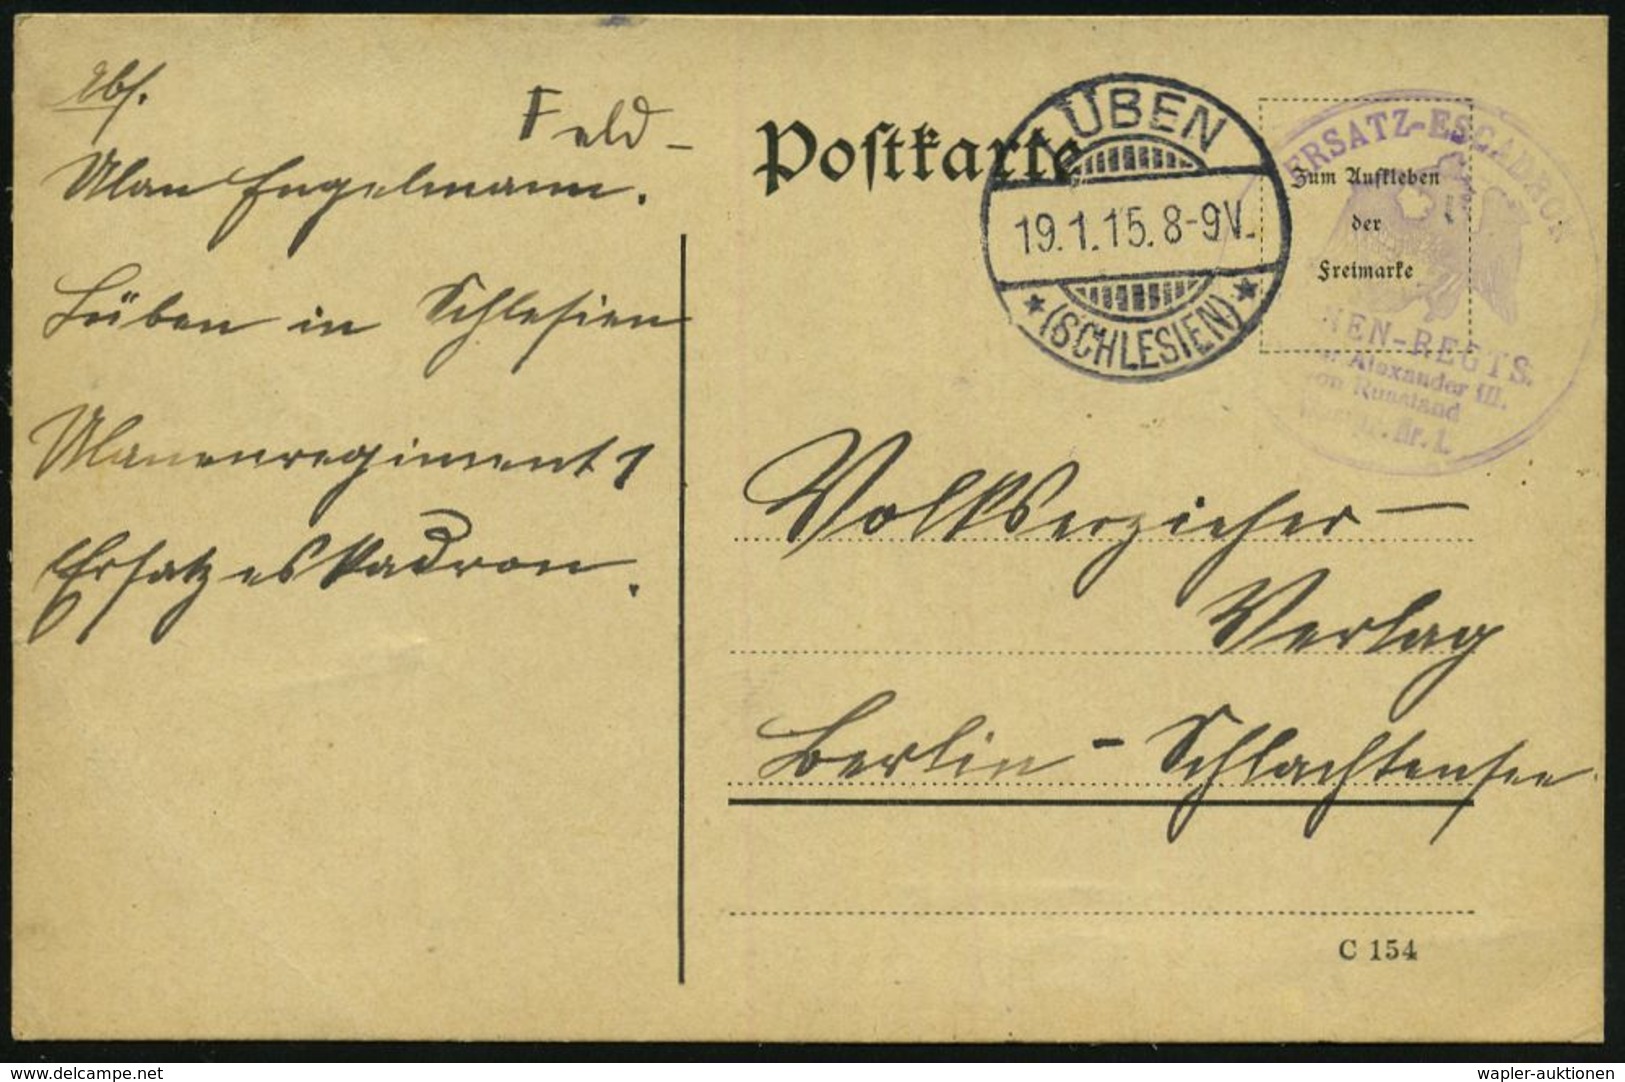 Abs.
Feld-
Ulan Engelmann.
Lüben in Schlesien
Ulanenregiment 1
Ersatzeskadron.
Postkarte
ÜBEN
19.1.15.8-9V.
* (SCHLESIEN) *
ERSATZ-ESCADRON
NEN-REGTS.
Alexander III.
von Russland
Nr. 1.
Zum Aufkleben
der
Freimarke
Volkserzieher-
Verlag
Berlin-Schlachtensee
C 154
www.delcampe.net
wapler-auktionen